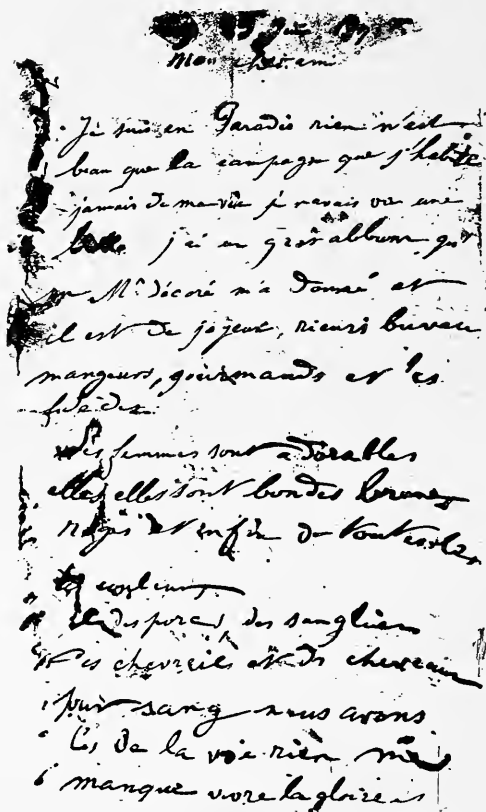 Mon cher ami
Je suis en Paradis rien n'est
beau que la campagne que j'habite
jamais de ma vie je navais vu une
belle j'ai un gros album qu'
un Mr décoré m'a donné et
il est de joyeux, rieurs buveu
mangeurs, gourmands et les
Les femmes sont adorables
elles elles sont blondes brunes
et enfin de toutes les
couleurs
des porcs, des sangliers
des chevreils et des chevaux
pur sang nous avons
de la vie rien me
manque vive la gloire